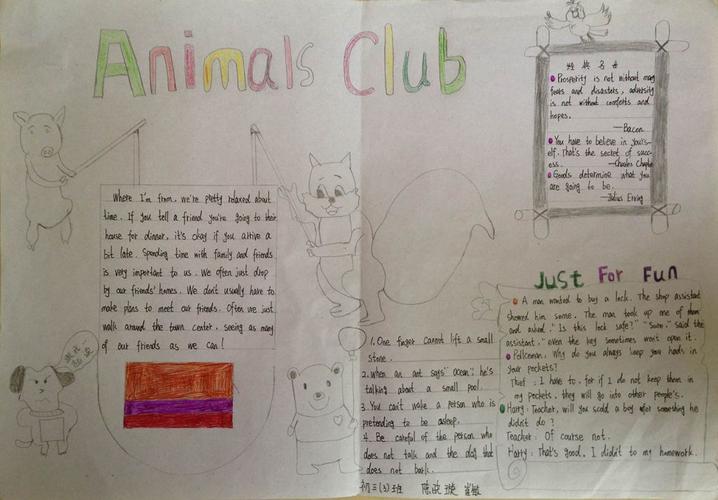 Animals Club
Where I'm from, we're pretty relaxed about
time. If you tell a friend you're going to their
house for dinner, it's okay if you arrive a
bit late. Spending time with family and friends
is very important to us. We often just drop
by our friends' homes. We don't usually have to
make plans to meet our friends. Often we just
walk around the town center, seeing as many
of our friends as we can!
名
Prosperity is not without many
fears and disasters, adversity
is not without comforts and
hopes.
—Bacon
You have to believe in yours-
elf. That's the secret of succ-
ess. —Charles
Goods determine what you
are going to be.
—Julius Erving
1. One finger cannot lift a small
stone.
2. When an ant says "ocean", he's
talking about a small pool.
3. You can't wake a person who is
pretending to be asleep.
4. Be careful of the person who
does not talk and the dog that
does not bark.
Just For Fun
A man wanted to buy a lock. The shop assistant
showed him some. The man took up one of them
and asked." Is this lock safe?" " said the
assistant." even the key sometimes won't open it.
Policeman: Why do you always keep you hands in
your pockets?
Thief: I have to, for if I do not keep them in
my pockets, they will go into other people's.
Harry: Teacher, will you scold a boy for something he
didn't do?
Teacher: Of course not.
Harry: That's good. I didn't to my homework.
初三(3)班 陈